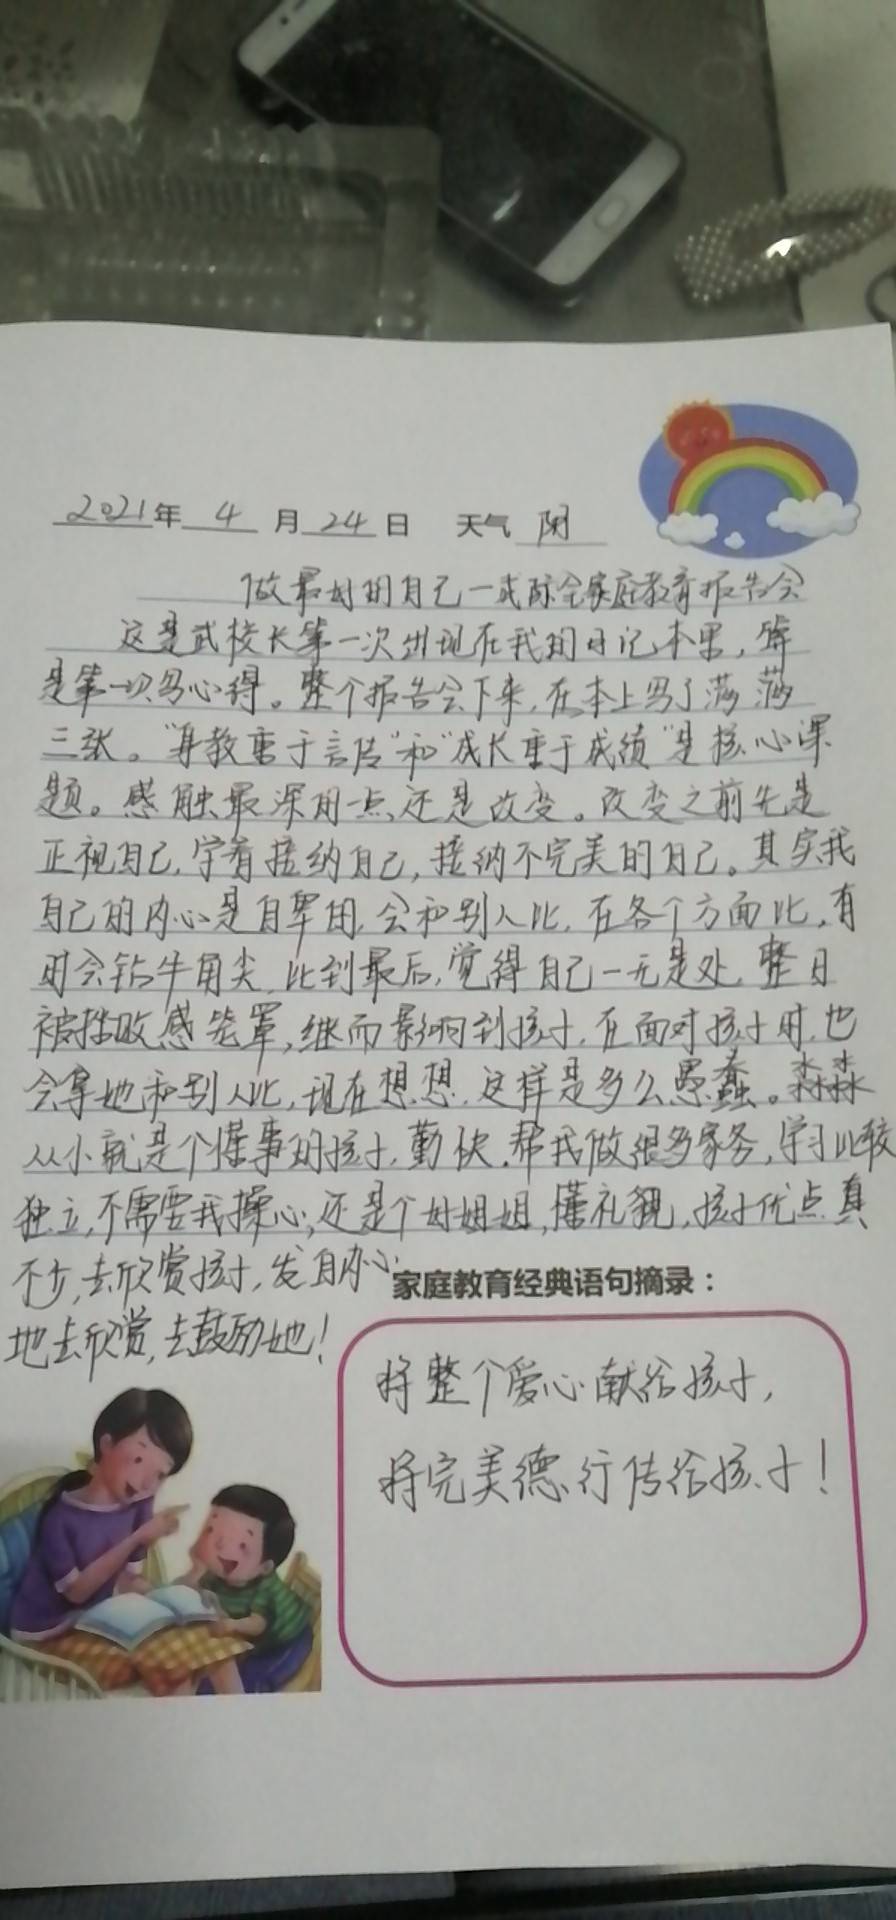 2021年 4 月 24 日 天气 阴
做最好的自己一武际全家庭教育报告会
这是武校长第一次出现在我的日记本里，算
是第一次写心得。整个报告会下来，在本上写了满满
三张。“身教重于言传”和“成长重于成绩”是核心课
题。感触最深的一点还是改变。改变之前先是
正视自己，学着接纳自己，接纳不完美的自己。其实我
自己的内心是自卑的，会和别人比，在各个方面比，有
时会钻牛角尖，比到最后，觉得自己一无是处，整日
被挫败感笼罩，继而影响到孩子，在面对孩子时，也
会拿她和别人比，现在想想，这样是多么愚蠢。淼淼
从小就是个懂事的孩子，勤快，帮我做很多家务，学习比较
独立，不需要我操心，还是个好姐姐，懂礼貌，孩子优点真
不少，去欣赏孩子，发自内心
地去欣赏，去鼓励她！
家庭教育经典语句摘录：
将整个爱心献给孩子，
将完美德行传给孩子！